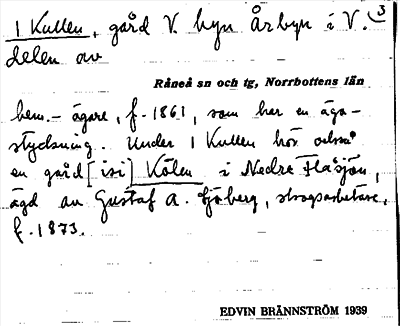 1 Kullen, gård V. byn Årbyn i V. 3
delen av
Råneå sn och tg, Norrbottens län
hem.-ägare, f. 1861, som har en äga-
styckning. Under 1 Kullen hör också
en gård [isi] Kölen i Nedre Flåsjön,
ägd av Gustaf A. Sjöberg, skogsarbetare,
f. 1873.
EDVIN BRÄNNSTRÖM 1939